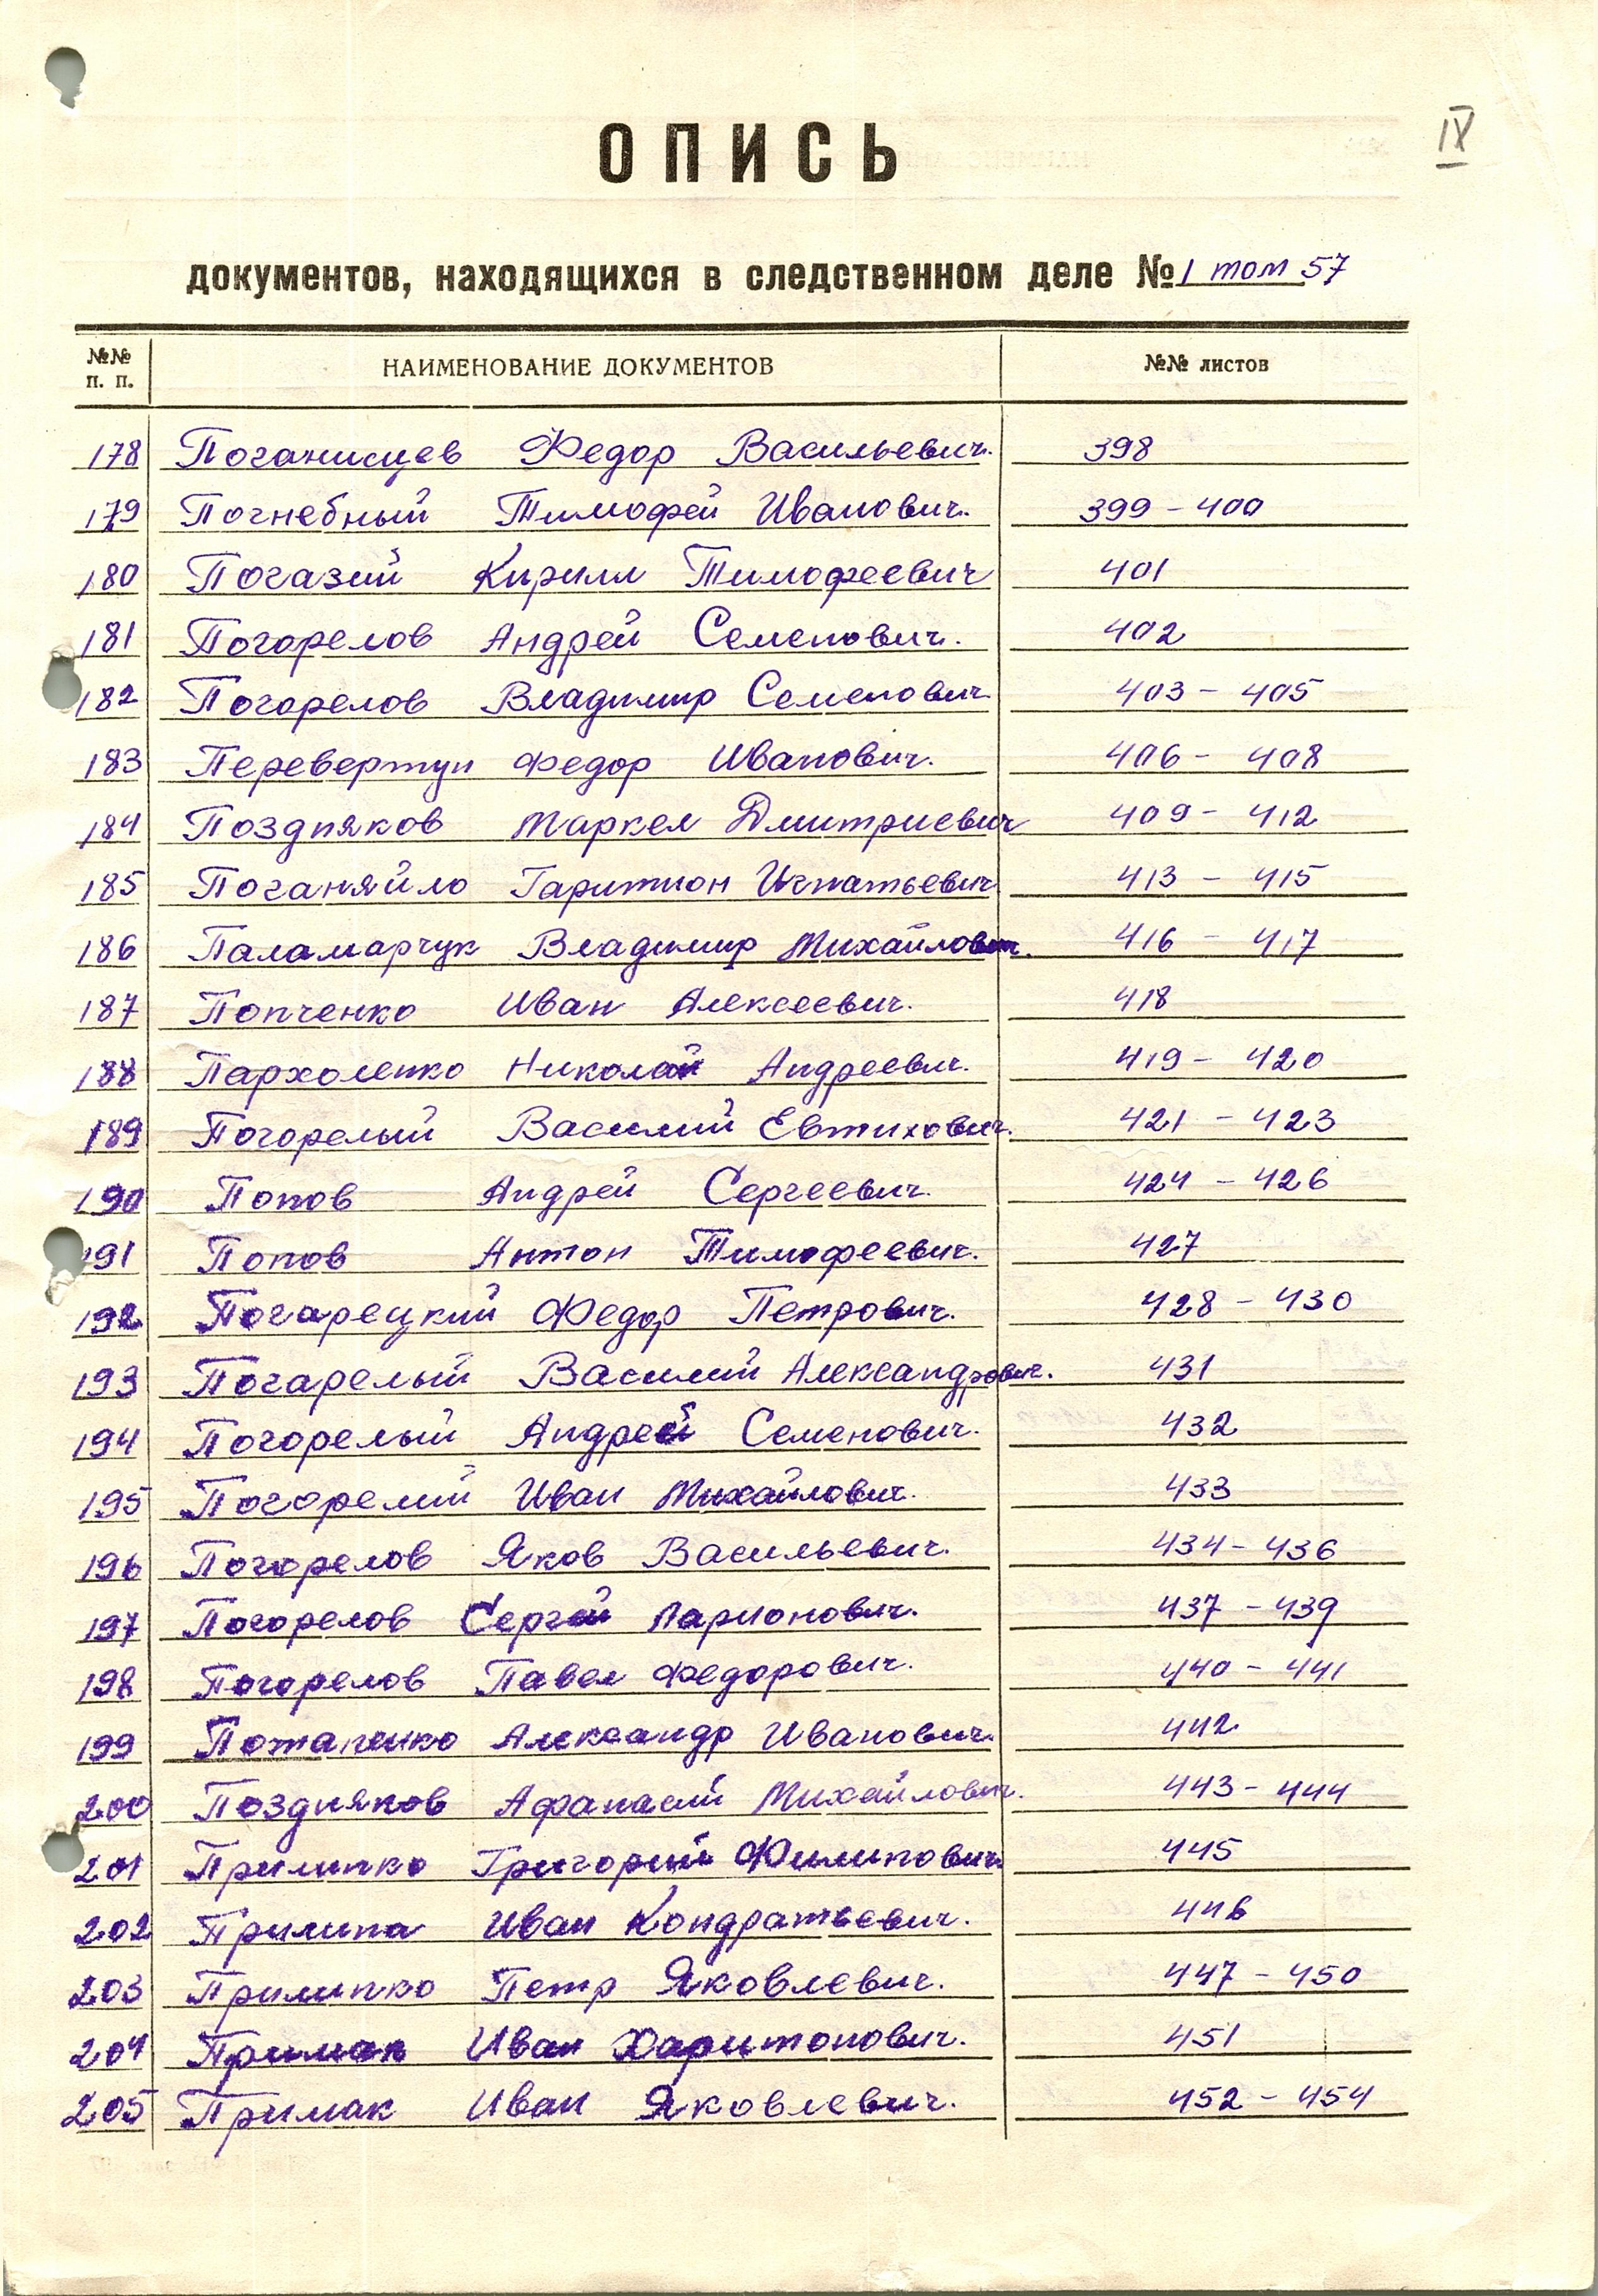 IV
ОПИСЬ
документов, находящихся в следственном деле № 1 том 57
№№ п. п. НАИМЕНОВАНИЕ ДОКУМЕНТОВ №№ листов
178 Федор Васильевич. 398
179 Погнебный Тимофей Иванович. 399 - 400
180 Погазий Кирилл Тимофеевич 401
181 Погорелов Андрей Семенович. 402
182 Погорелов Владимир Семенович 403 - 405
183 Перевертун Федор Иванович. 406 - 408
184 Поздняков Маркел Дмитриевич 409 - 412
185 Поганяйло Гаритион Игнатьевич 413 - 415
186 Паламарчук Владимир Михайлович. 416 - 417
187 Попченко Иван Алексеевич. 418
188 Пархоленко Николай Андреевич. 419 - 420
189 Погорелый Василий Евтихович. 421 - 423
190 Попов Андрей Сергеевич. 424 - 426
191 Попов Антон Тимофеевич. 427
192 Погарецкий Федор Петрович. 428 - 430
193 Погарелый Василий Александрович. 431
194 Погорелый Андрей Семенович. 432
195 Погорелий Иван Михайлович. 433
196 Погорелов Яков Васильевич. 434 - 436
197 Погорелов Сергей Ларионович. 437 - 439
198 Погорелов Павел Федорович. 440 - 441
199 Потапенко Александр Иванович. 442
200 Поздняков Афанасий Михайлович. 443 - 444
201 Прилипко Григорий Филипович 445
202 Прилипа Иван Кондратьевич. 446
203 Прилипко Петр Яковлевич. 447 - 450
204 Примак Иван Харитонович. 451
205 Примак Иван Яковлевич. 452 - 454